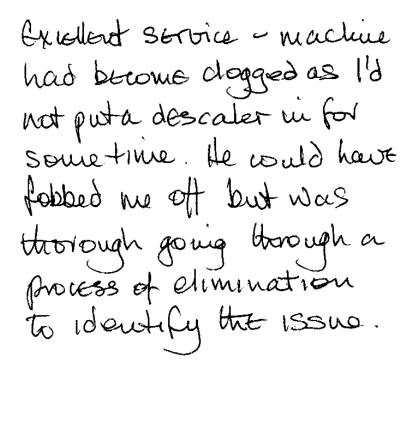 Excellent service - machine
had become clogged as I'd
not put a descaler in for
sometime. He could have
fobbed me off but was
thorough going through a
process of elimination
to identify the issue.